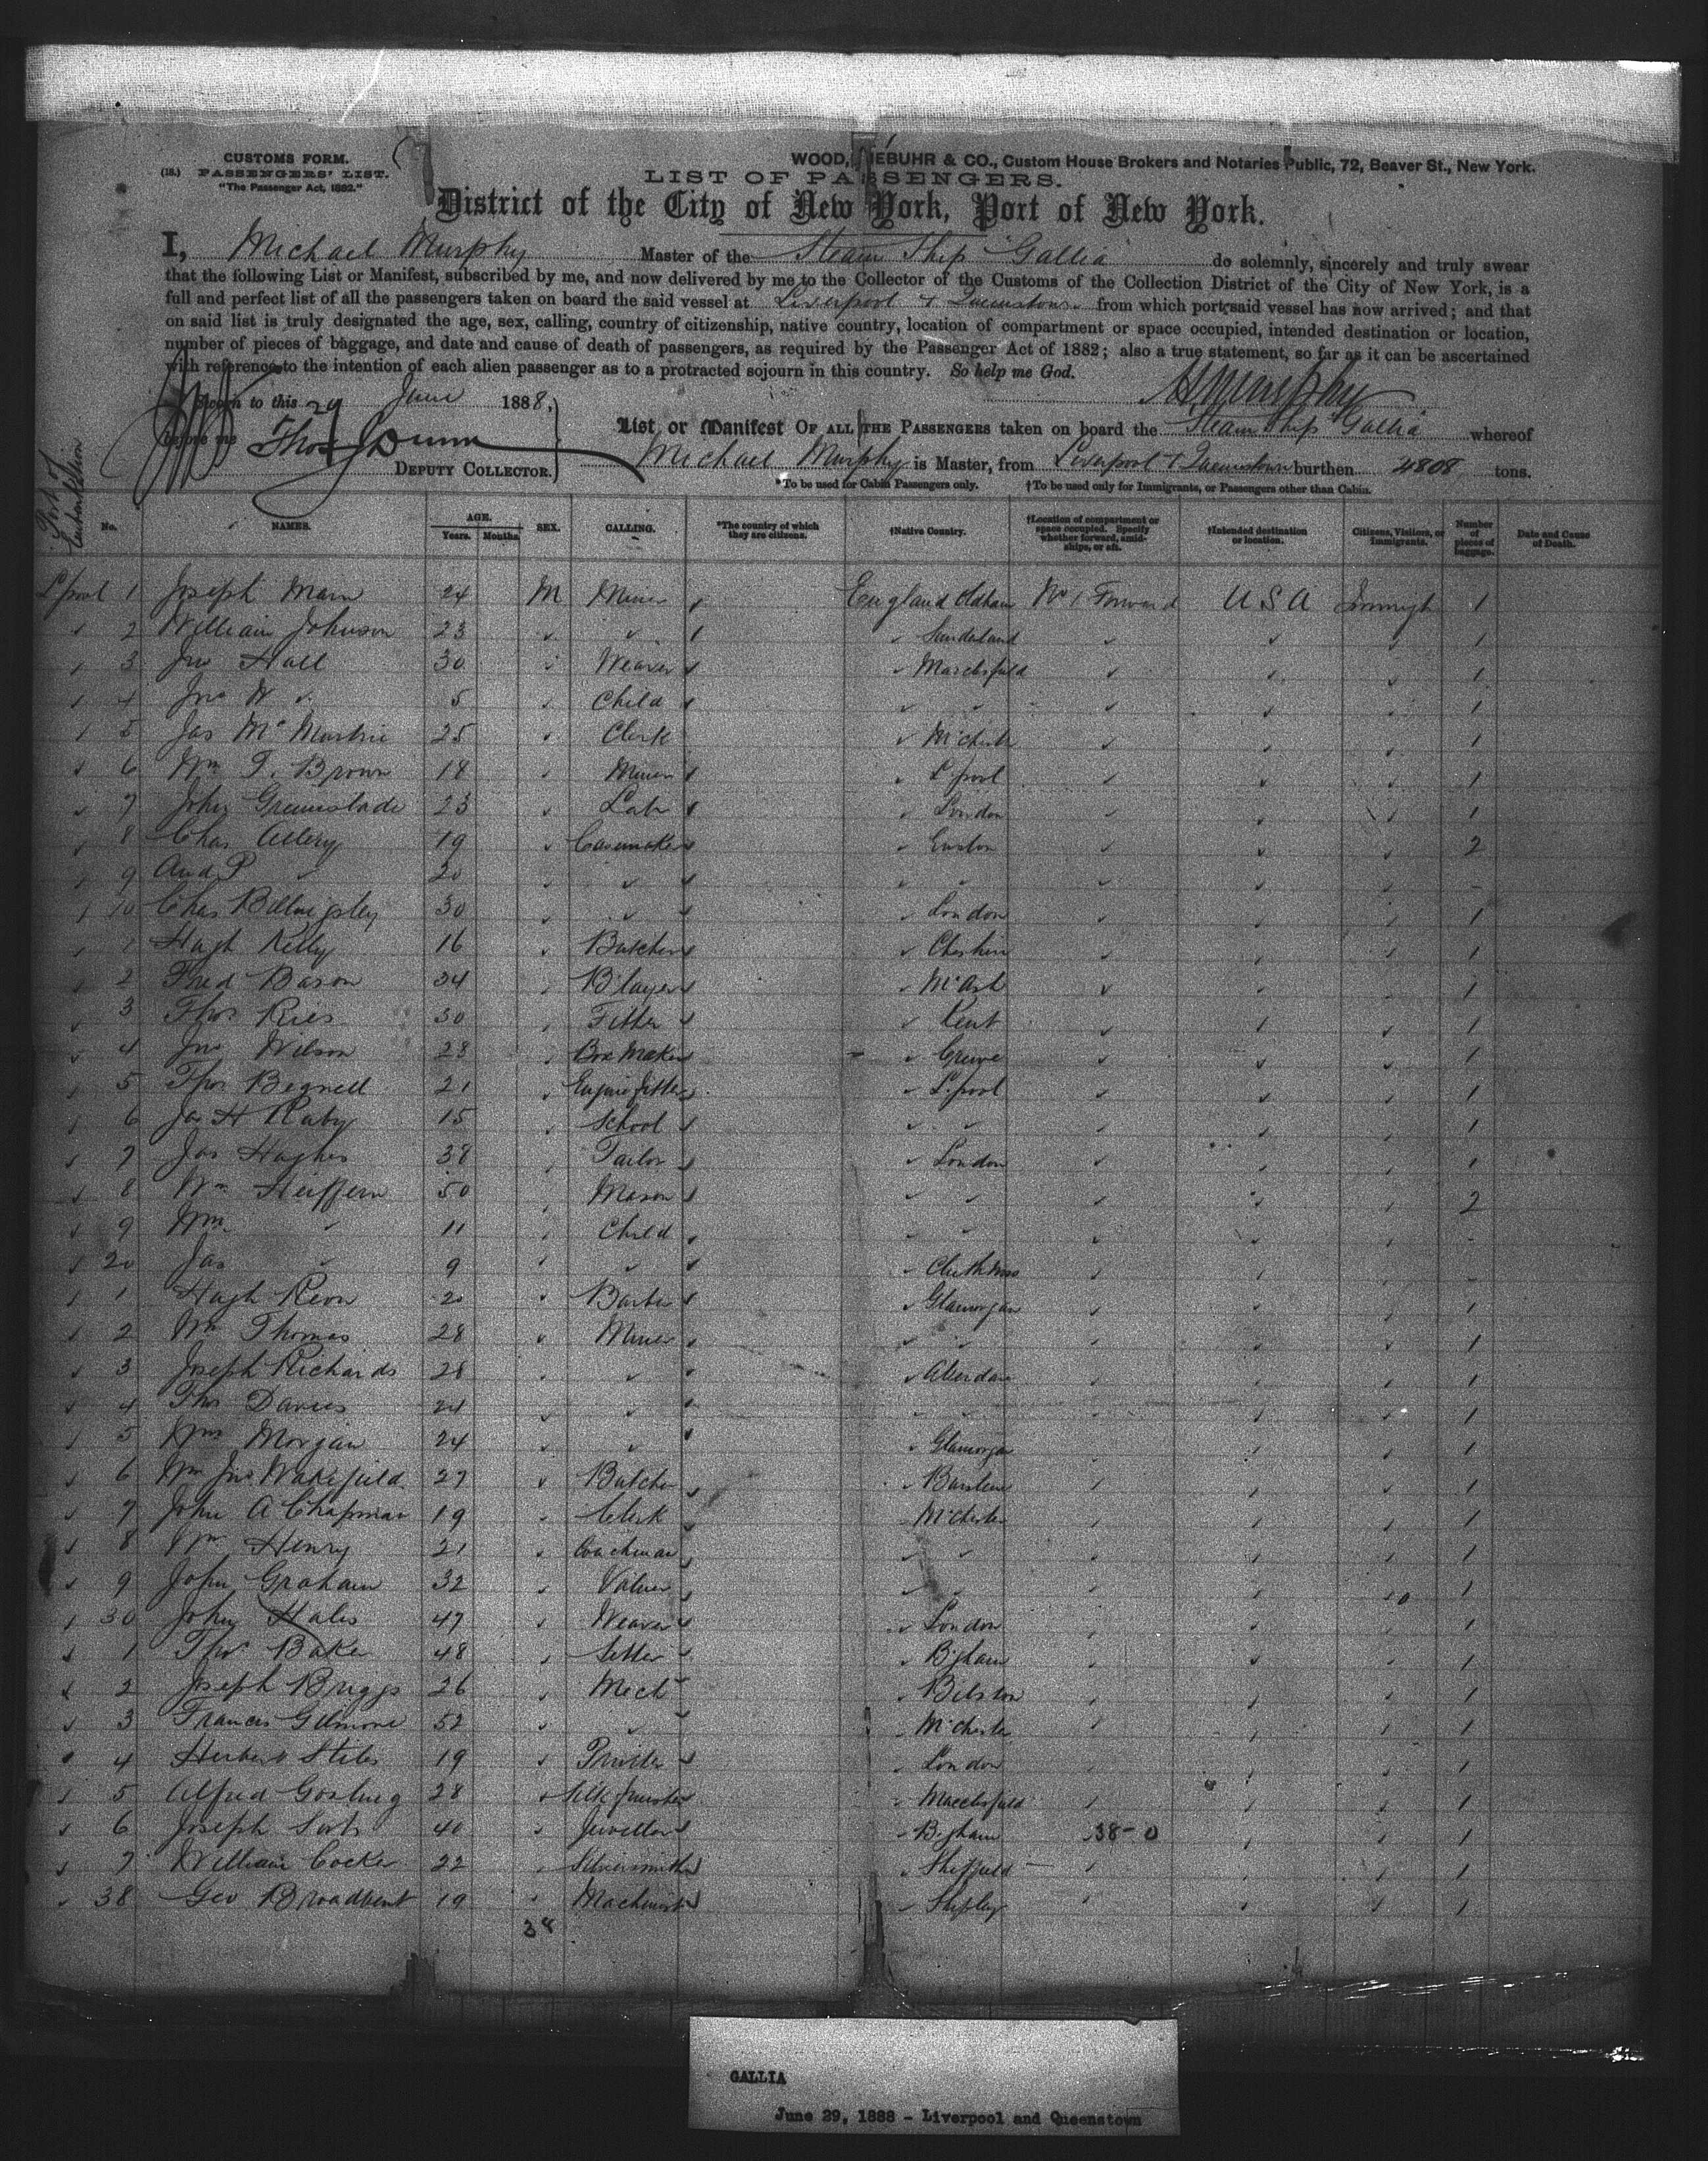 CUSTOMS FORM.
(18.) PASSENGERS' LIST.
"The Passenger Act, 1882."
WOOD, & CO., Custom House Brokers and Notaries Public, 72, Beaver St., New York.
LIST OF PASSENGERS.
District of the City of New York, Port of New York.
I, Michael Murphy Master of the Steam Ship Gallia do solemnly, sincerely and truly swear
that the following List or Manifest, subscribed by me, and now delivered by me to the Collector of the Customs of the Collection District of the City of New York, is a
full and perfect list of all the passengers taken on board the said vessel at Liverpool + Queenstown from which port said vessel has now arrived; and that
on said list is truly designated the age, sex, calling, country of citizenship, native country, location of compartment or space occupied, intended destination or location,
number of pieces of baggage, and date and cause of death of passengers, as required by the Passenger Act of 1882; also a true statement, so far as it can be ascertained
with reference to the intention of each alien passenger as to a protracted sojourn in this country. So help me God.
Sworn to this 29 June 1888,
before me Thos J Dunn
DEPUTY COLLECTOR.
List or Manifest OF ALL THE PASSENGERS taken on board the Steam Ship Gallia whereof
Michael Murphy is Master, from Liverpool + Queenstown burthen 4808 tons.
*To be used for Cabin Passengers only. †To be used only for Immigrants, or Passengers other than Cabin.
Port of Embarkation No. NAMES. AGE. Years. Months. SEX. CALLING. *The country of which they are citizens. †Native Country. †Location of compartment or space occupied. Specify whether forward, amidships, or aft. †Intended destination or location. Citizens, Visitors, or Immigrants. Number of pieces of baggage. Date and Cause of Death.
L'pool 1 Joseph Mann 24 M Miner England Oldham No 1 Forward USA Immigt 1
2 William Johnson 23 Sunderland 1
3 Jno Hall 30 Weaver 1
4 Jno W 5 Child 1
5 Jas 25 Clerk M'chester 1
6 Wm T. Brown 18 Miner L'pool 1
7 John Greenslade 23 Lab London 1
8 Chas Allery 19 Casemaker Euston 2
9 And P 20
10 Chas Billingsley 30 London 1
1 Hugh Kelly 16 Butcher Cheshire 1
2 Fred Bason 34 B'layer 1
3 Thos Ries 30 Fitter Kent 1
4 Jno Wilson 28 Box Maker Crewe 1
5 Thos Begnell 21 Engine fitter L'pool 1
6 Jas H Raby 15 School 1
7 Jas Hughes 38 Tailor London 1
8 Wm Heiffern 50 Mason 2
9 Wm 11 Child
20 Jas 9
1 Hugh 20 Barber Glamorgan 1
2 Wm Thomas 28 Miner 1
3 Joseph Richards 28 Aberdare 1
4 Thos Davies 24 1
5 Wm Morgan 24 Glamorgan 1
6 Wm Jno Wakefield 27 Butcher Burslem 1
7 John A Chapman 19 Clerk M'chester 1
8 Wm Henry 21 Coachman 1
9 John Graham 32 1
30 John Hales 47 Weaver London 1
1 Thos Baker 48 B'gham 1
2 Joseph Briggs 26 Mech Bilston 1
3 Francis Gilmore 52 M'chester 1
4 Herbert Stiles 19 Printer London 1
5 Alfred Gosling 28 Silk finisher Macclesfield 1
6 Joseph 40 Jeweller B'gham 38-0 1
7 William Cocker 22 Silversmith Sheffield 1
38 Geo Broadbent 19 Machinist Shipley 1
38
GALLIA
June 29, 1888 - Liverpool and Queenstown